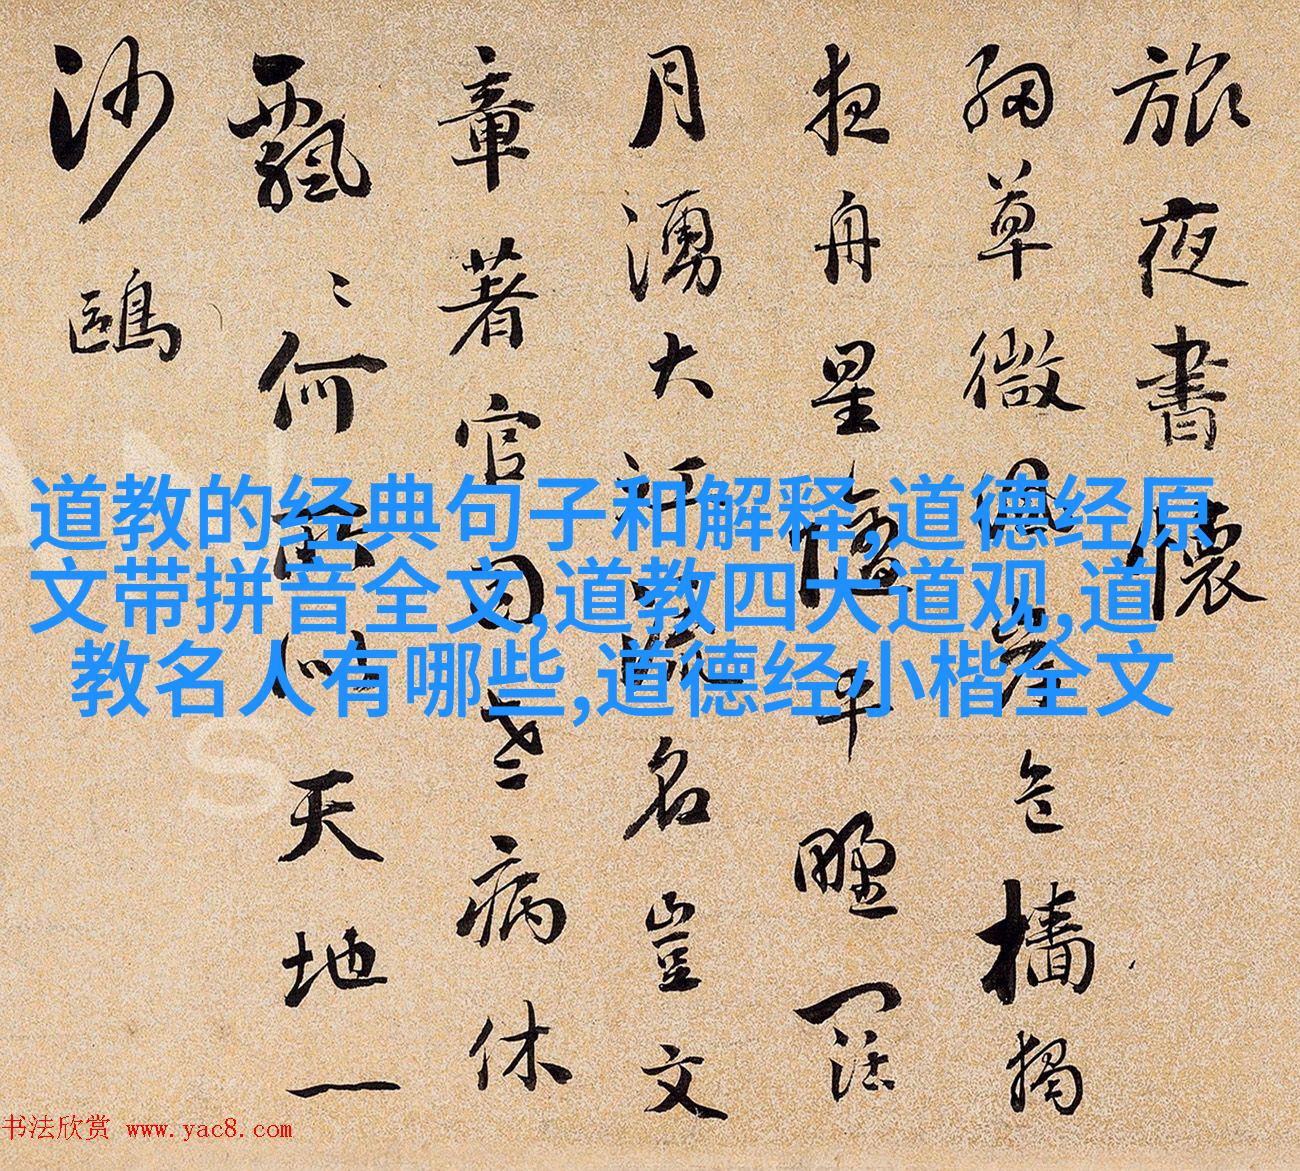 旅夜書懷
細草微風岸危檣獨
夜舟星平野闊
月湧大江流名豈文
章著官因老病休
飄〻何所似天地一
沙鷗
道教的经典句子和解释,道德经原
文带拼音全文,道教四大道观,道
教名人有哪些,道德经小楷全文
书法欣赏 www.yac8.com